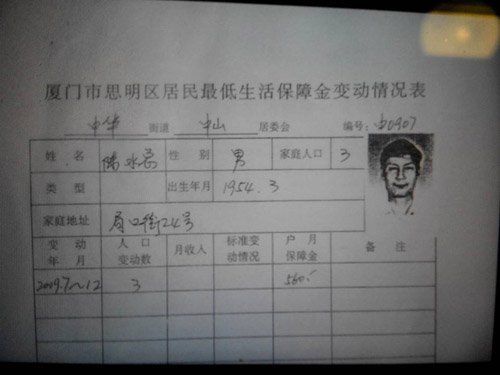 厦门市思明区居民最低生活保障金变动情况表
中华 街道 中山 居委会 编号:中0907
姓名 陈水总 性别 男 家庭人口 3
类型 出生年月 1954.3
家庭地址 局口街24号
变动年月 人口变动数 月收入 标准变动情况 户月保障金 备注
2009.7~12 3 560